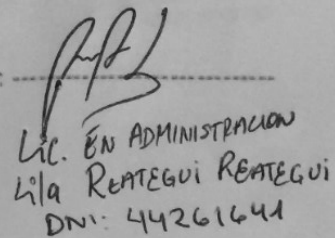 Lic. EN ADMINISTRACION
Lila REATEGUI REATEGUI
DNI: 44261641